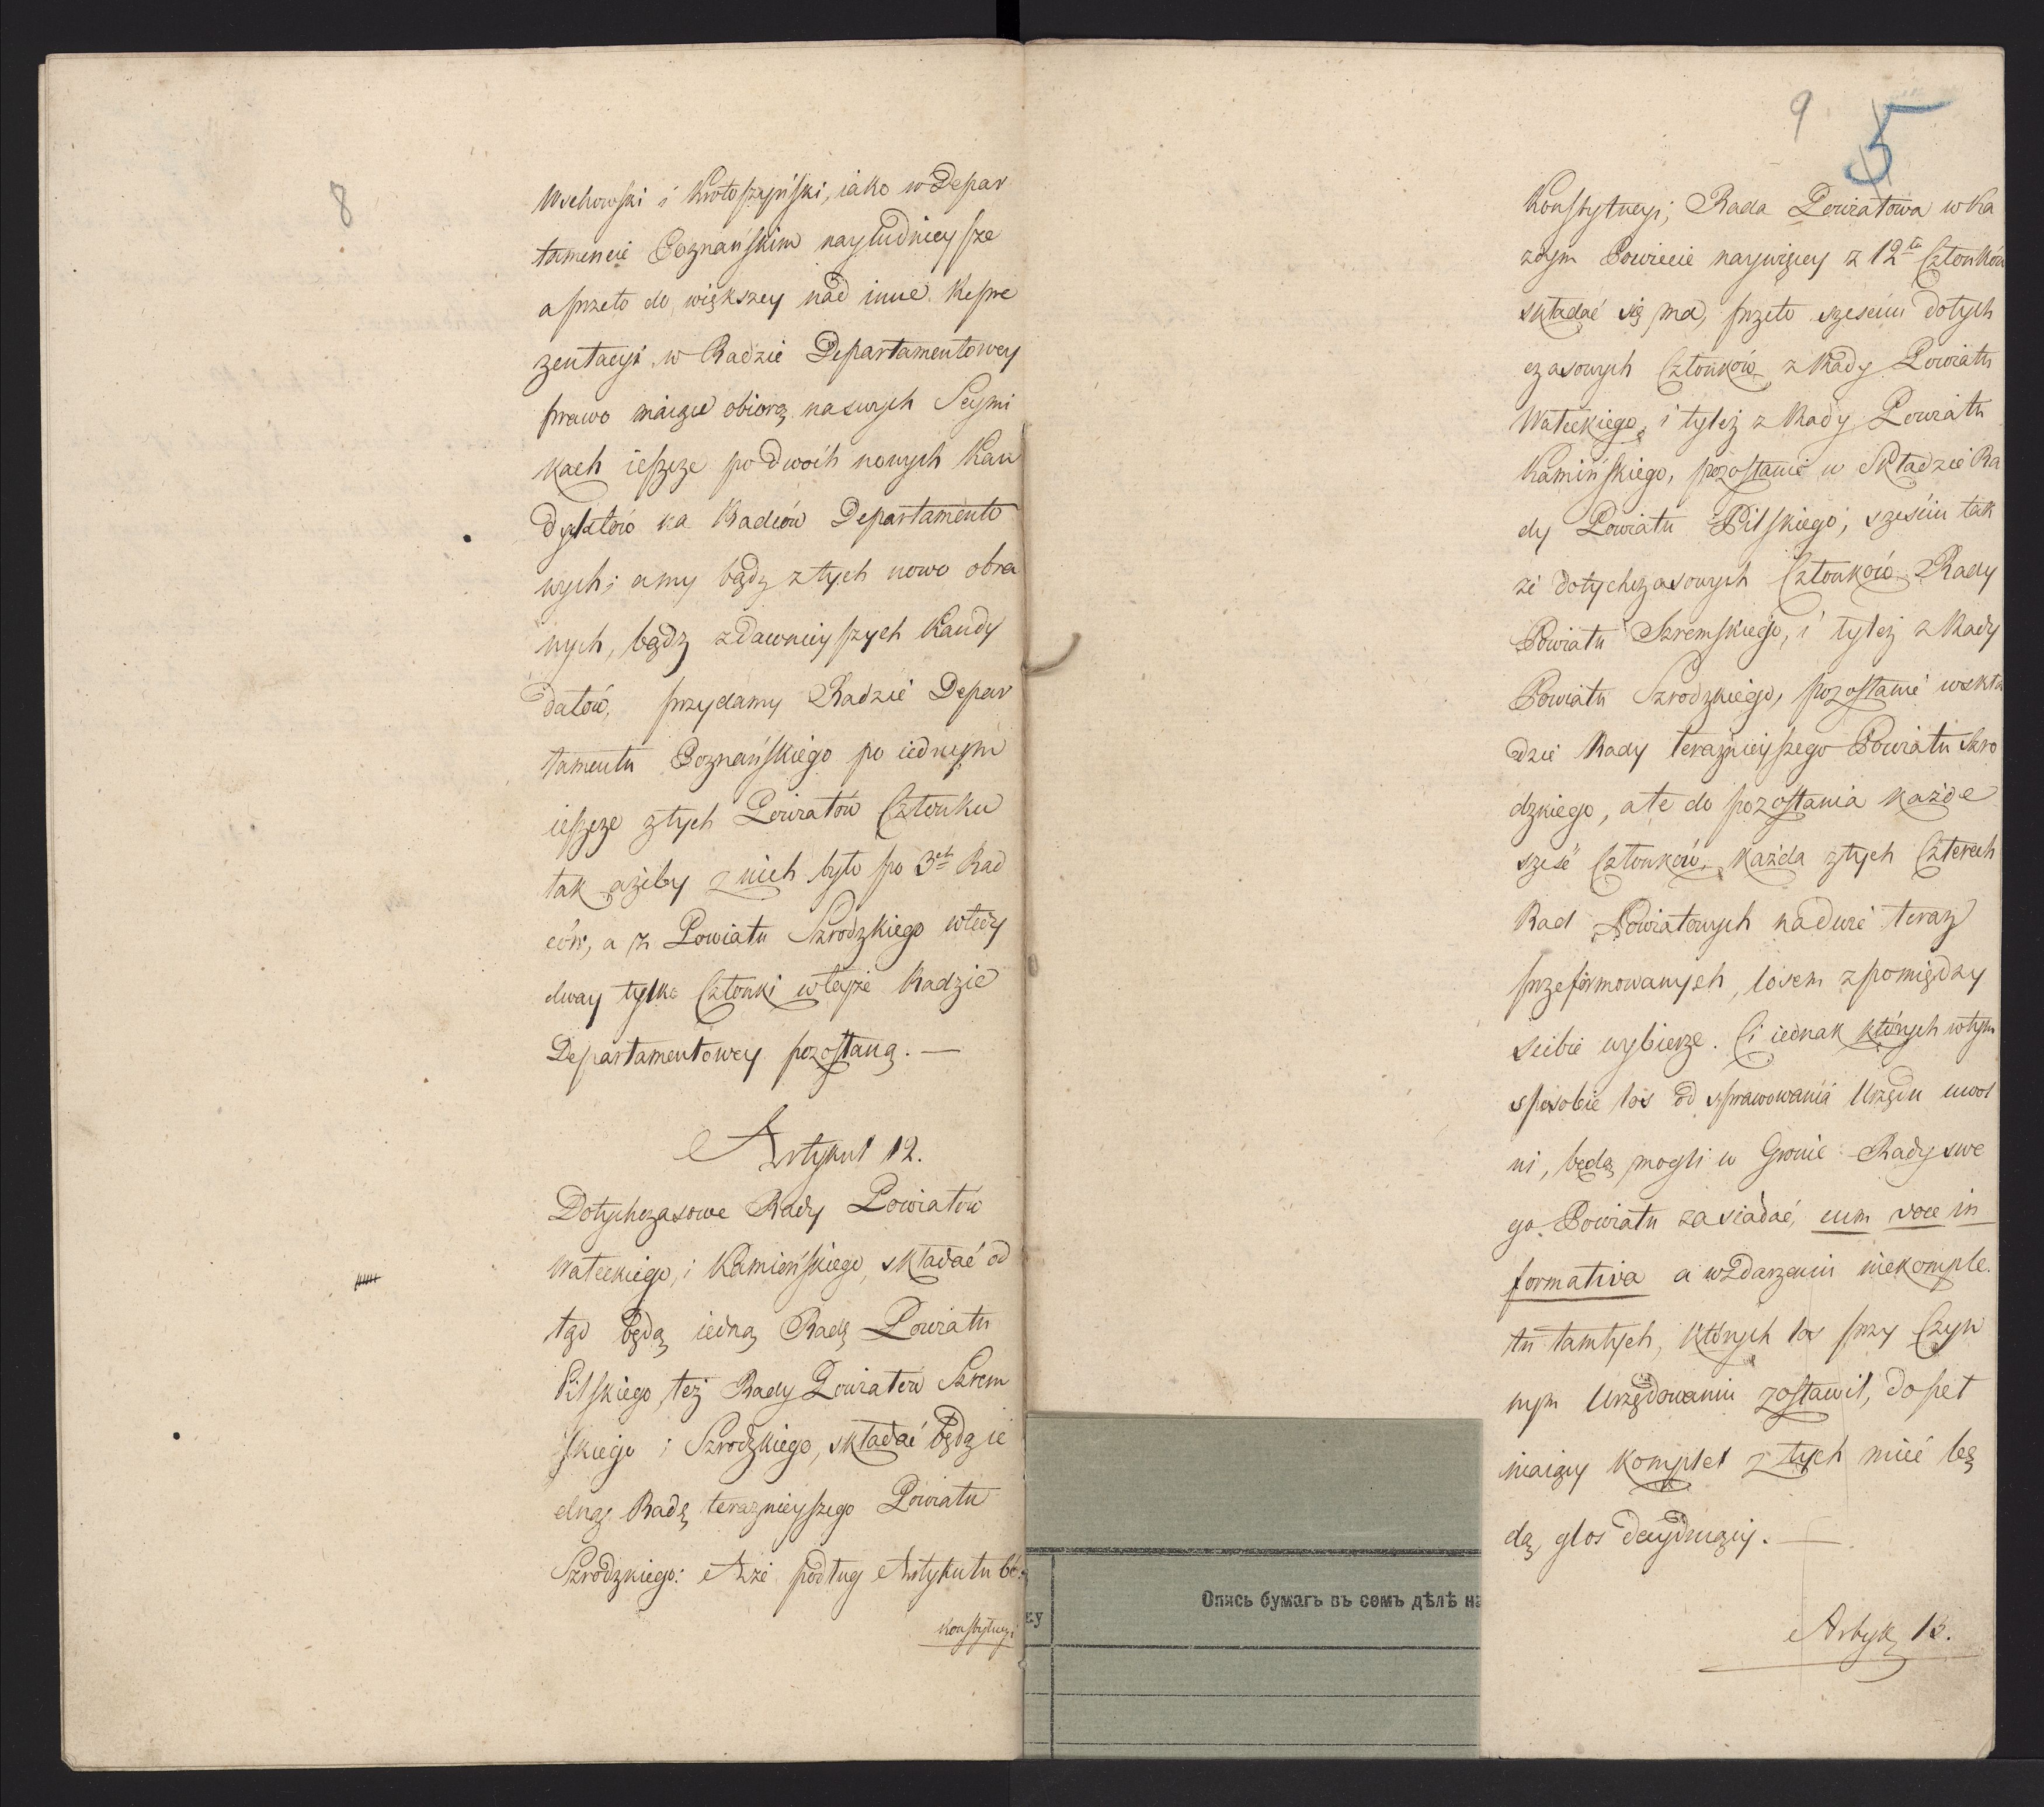 8
Wschowski i Krotoszyński, iako w Depar
tamencie Poznańskim nayludnieysze
a przeto do większey nad inne Repre
zentacyi w Radzie Departamentowey
prawo maiące obiorą na swych Seymi
kach ieszcze po dwóch nowych Kan
dydatów na Radców Departamento
wych; a my bądź z tych nowo obra
nych, bądź z dawnieyszych Kandy
datów, przydamy Radzie Depar
tamentu Poznańskiego po iednym
ieszcze z tych Powiatów Członku
tak ażeby z nich było po 3ch Rad
ców, a z Powiatu Szrodzkiego wtedy
dway tylko Członki w teyże Radzie
Departamentowey pozostaną. —
Artykuł 12.
Dotychczasowe Rady Powiatów
Wałeckiego, i Kamieńskiego, składać od
tąd będą iedną Radę Powiatu
Pilskiego, też Rady Powiatów Szrem
skiego i Szrodzkiego, składać będą ie
dną Radę teraznieyszego Powiatu
Szrodzkiego: A że podług Artykułu 60.
Konstytucyi
9
5
Konstytucyi; Rada Powiatowa w ka
żdym Powiecie naywięcey z 12tu Członków
składać się ma, przeto sześciu dotych
czasowych Członków z Rady Powiatu
Wałeckiego, i tyleż z Rady Powiatu
Kamińskiego, pozostanie w Składzie Ra
dy Powiatu Pilskiego; sześciu tak
że dotychczasowych Członków Rady
Powiatu Szremskiego, i tyleż z Rady
Powiatu Szrodzkiego, pozostanie w skła
dzie Rady teraźnieyszego Powiatu Szro
dzkiego, a te do pozostania każde
sześć Członków, każda z tych Czterech
Rad Powiatowych na dwie teraz
przeformowanych, losem z pomiędzy
siebie wybierze. Ci iednak których w tym
sposobie los od sprawowania Urzędu uwol
ni, będą mogli w Gronie Rady swe
go Powiatu zasiadać, cum voce in
formativa a w zdarzeniu niekomple
tu tamtych, których los przy Czyn
nym Urzędowaniu zostawił, dopeł
niaiący komplet z tych mieć bę
dą, głos decyduiący. —
Artyk 13.
ку
Опись бумагъ въ семъ дѣлѣ на